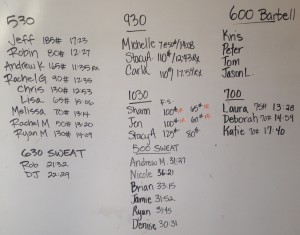 530
Jeff 185# 17:23
Robin 80# 12:27
Andrew K 165# 11:35RX
Rachel G 90# 12:35
Chris 130# 12:53
Lisa 65# 15:06
Melissa 70# 13:14
Rachel M 50# 13:20
Ryan M 130# 14:09
630 SWEAT
Rob 21:32
DJ 22:29
930
Michelle
Stacy A 110#
Carla 110#
1030
F.S.
Shann 100#
Jen 100#
Stacy A 125# 80#
500 SWEAT
Andrew M. 31:27
Nicole 36:21
Brian 33:15
Jamie 31:52
Ryan 31:45
Denise 30:31
600 Barbell
Kris
Peter
Tom
Jason L.
700
Laura 75# 13:28
Deborah 70# 14:09
Katie 70# 17:40